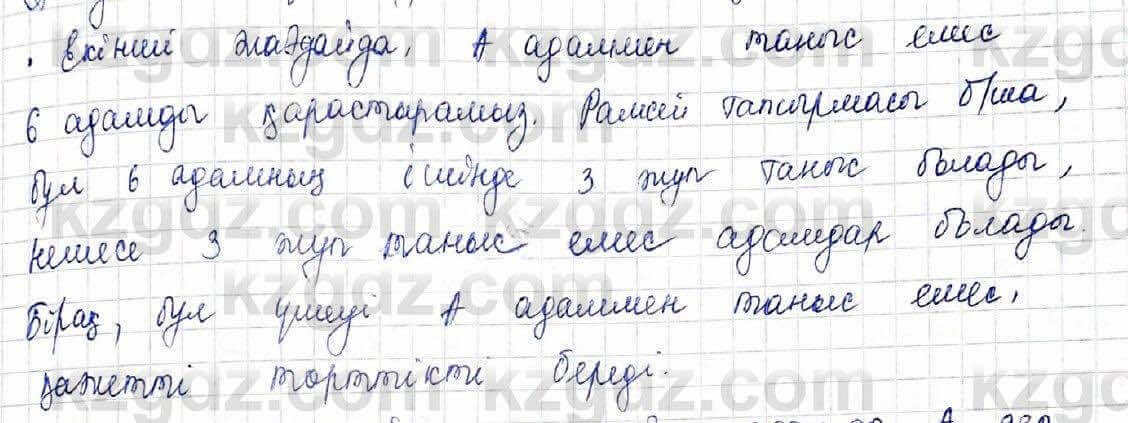 . Екінші жағдайда, А адаммен таныс емес
6 адамды қарастырамыз. Рамсей тапсырмасы б/ша,
бұл 6 адамның ішінде 3 жұп таныс болады,
немесе 3 жұп таныс емес адамдар болады.
Бірақ, бұл үшеуі А адаммен таныс емес,
қажетті төрттікті береді.
kzgdz.com